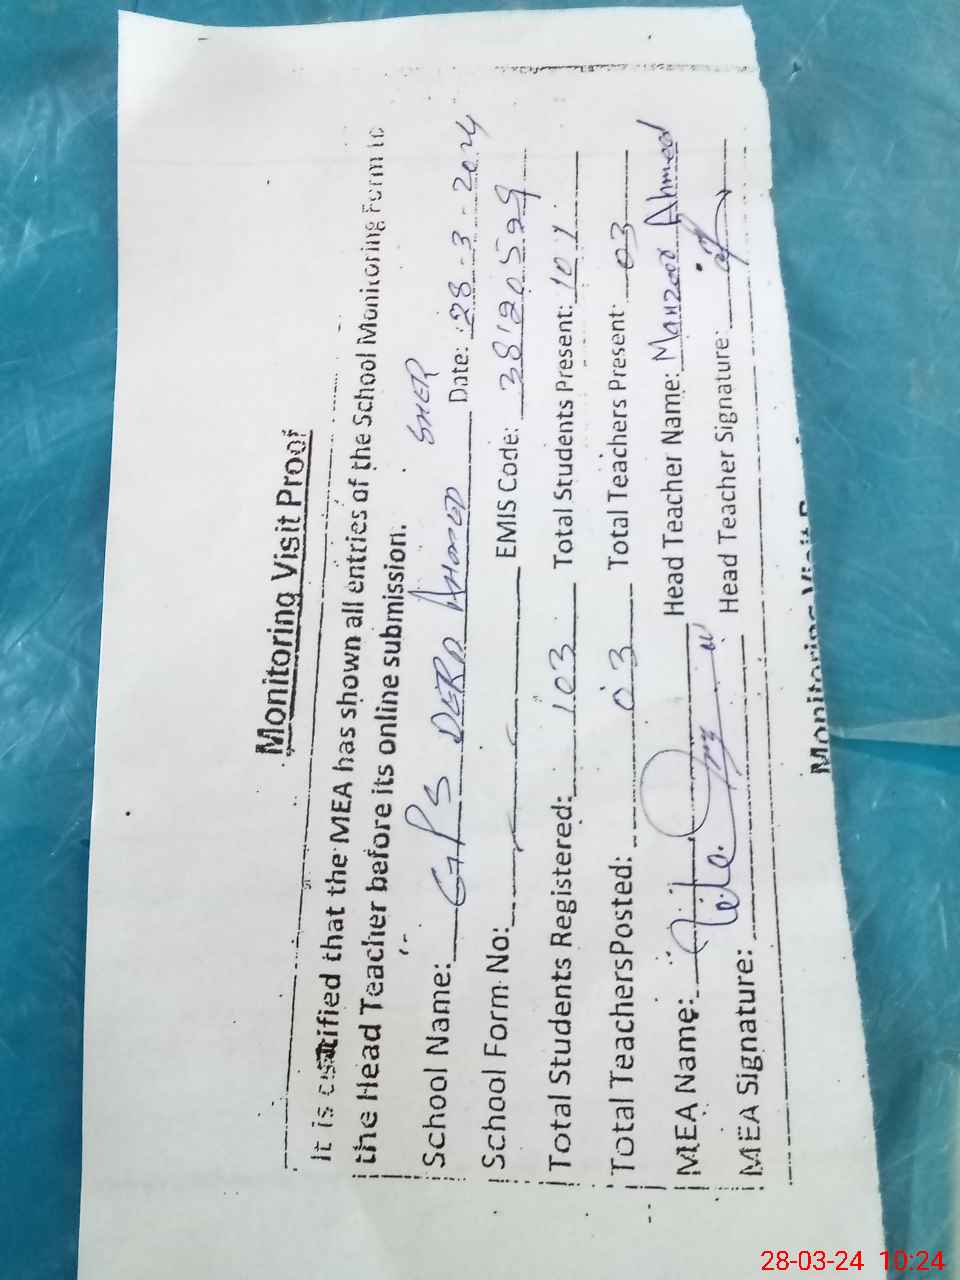 Monitoring Visit Proof
It is certified that the MEA has shown all entries of the School Monitoring Form to
the Head Teacher before its online submission.
School Name: GPS DERA AHMED SHER Date: 28-3-2024
School Form No: EMIS Code: 38120529
Total Students Registered: 103 Total Students Present: 101
Total Teachers Posted: 03 Total Teachers Present: 03
MEA Name: Head Teacher Name: Manzoor Ahmed
MEA Signature: Head Teacher Signature:
Monitoring Visit
28-03-24 10:24